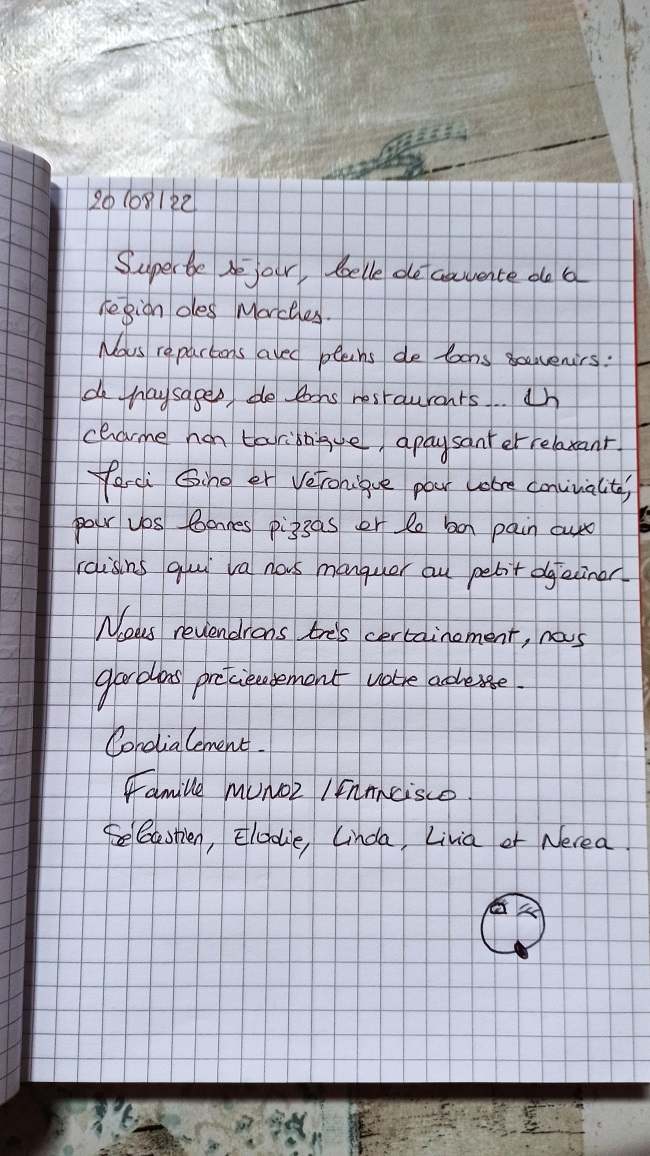 20/08/22
Superbe séjour, belle découverte de la
région des Marches.
Nous repartons avec pleins de bons souvenirs :
de paysages, de bons restaurants... Un
charme non touristique, apaysant et relaxant.
Merci Gino et Véronique pour votre convivialité,
pour vos bonnes pizzas et le bon pain aux
raisins qui va nous manquer au petit déjeuner.
Nous reviendrons très certainement, nous
gardons précieusement votre adresse.
Cordialement.
Famille MUNOZ / FRANCISCO.
Sébastien, Elodie, Linda, Livia et Nerea.